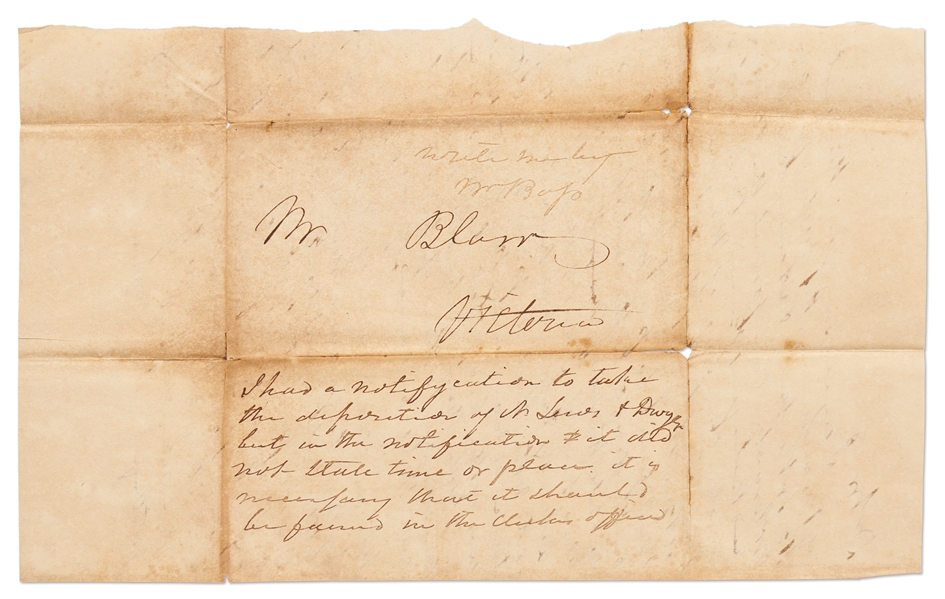 write me by
Mr Bass
Mr Blow
Victoria
I had a notifycation to take
the deposition of N Lewis & Dwyer
but in the notification it did
not State time or place it is
necessary that it should
be found in the clerks office